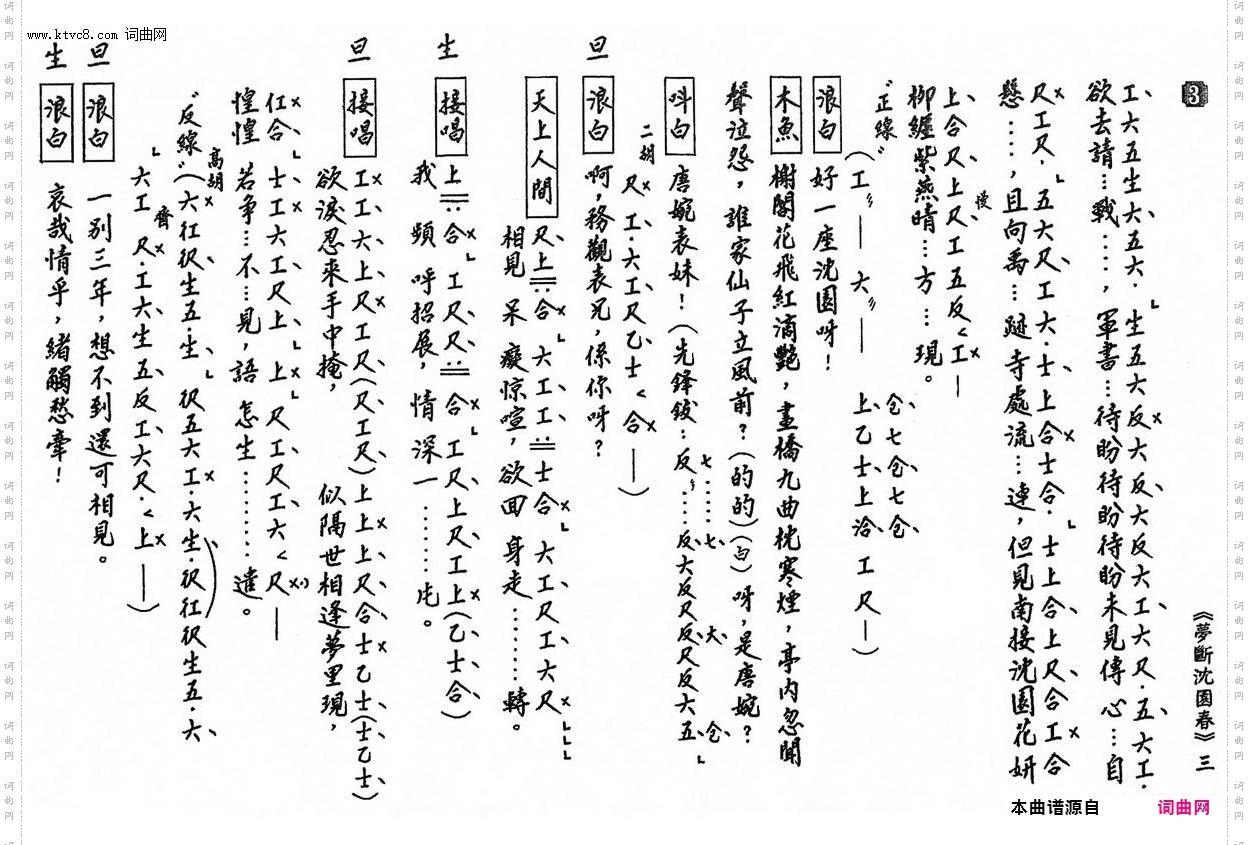 www.ktvc8.com 词曲网
3
《夢斷沈園春》 三
工大五生大五六·生五六反大反大反大工大尺·五大工·
欲去請…戰……，軍書…待盼待盼待盼未見傳心…自
尺工尺·五大尺工大·士上合士合·士上合上尺合工合
懸……，且向禹…跡寺處流…連，但見南接沈園花妍
上合尺上尺工五反<工—
慢
柳纏紫燕晴…方…現。
"正線"
(工—大—上乙士上洽工尺—)
仓七仓七仓
浪白 好一座沈園呀！
木魚 榭閣花飛紅滴艷，畫橋九曲枕寒煙，亭內忽聞
聲泣怨，誰家仙子立風前？(的的)(白)呀，是唐婉？
七……七 大 仓
呌白 唐婉表妹！(先鋒鈸：反……反大反尺反尺反大五
二胡
尺工·六工尺乙士<合—)
旦 浪白 啊，務觀表兄，係你呀？
天上人間 尺上·合大工工士合大工尺工大尺
相見呆癡惊喧，欲回身走……轉。
生 接唱 上合工尺尺合工尺上尺工上(乙士合)
我頻呼招展，情深一……片。
旦 接唱 工工六上尺工尺(尺工尺)上上上尺合士乙士(士乙士)
欲淚忍来手中掩，似隔世相逢夢里現，
仜合士工六工尺上上尺工尺工六<尺—
惶惶若争…不…見，語怎生………達。
高胡
"反線"(六仜伬生五·生伬五六工·六生·伬仜伬生五·六
齊
六工尺·工六生五反工六尺·<上—)
旦 浪白 一别三年，想不到還可相見。
生 浪白 哀哉情乎，緒觸愁牽！
本曲谱源自 词曲网